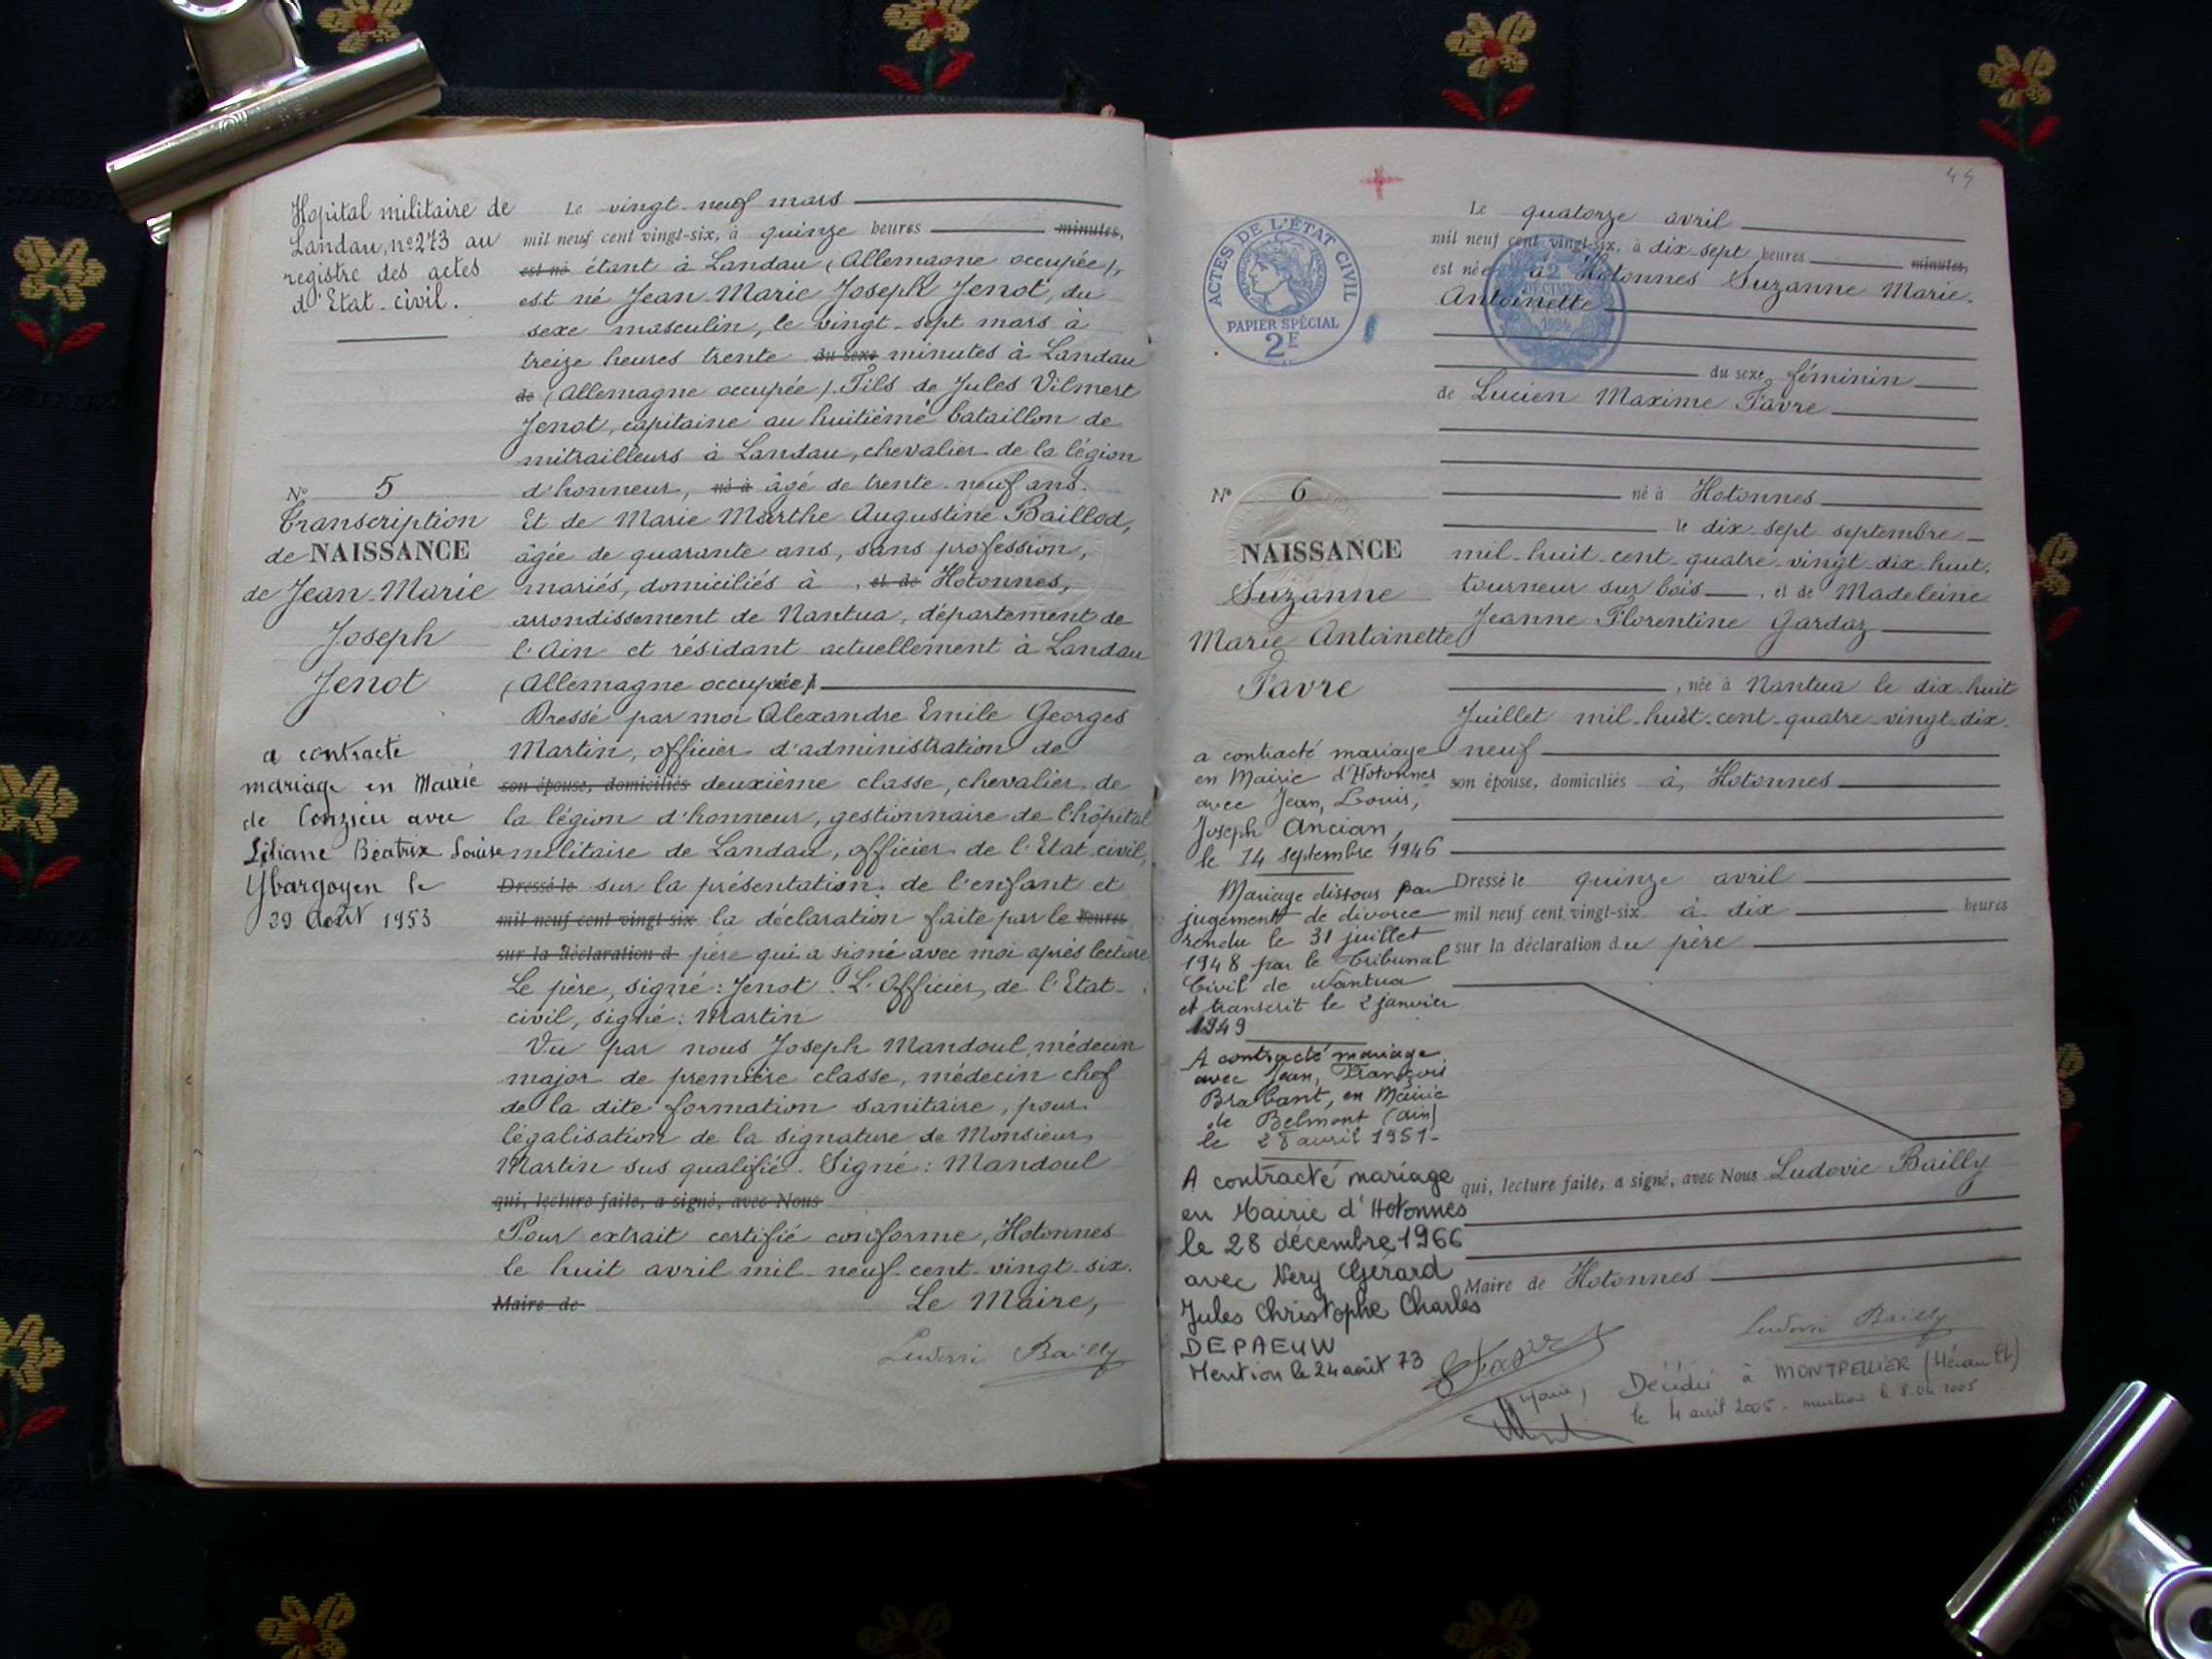 Hopital militaire de
Landau, nº 273 au
registre des actes
d'Etat-civil.
Nº 5
Transcription
de NAISSANCE
de Jean-Marie
Joseph
Jenot
a contracté
mariage en Mairie
de Conzieu avec
Liliane Béatrix Louise
Ybargoyen le
29 Août 1953
Le vingt-neuf mars
mil neuf cent vingt-six, à quinze heures minutes,
est né étant à Landau (Allemagne occupée),
est né Jean-Marie Joseph Jenot, du
sexe masculin, le vingt-sept mars à
treize heures trente du sexe minutes à Landau
de (Allemagne occupée). Fils de Jules Vilmert
Jenot, capitaine au huitième bataillon de
mitrailleurs à Landau, chevalier de la légion
d'honneur, né à âgé de trente-neuf ans.
Et de Marie Marthe Augustine Baillod,
âgée de quarante ans, sans profession,
mariés, domiciliés à , et de Hotonnes,
arrondissement de Nantua, département de
l'Ain et résidant actuellement à Landau
(Allemagne occupée).
Dressé par moi Alexandre Emile Georges
Martin, officier d'administration de
son épouse, domiciliés deuxième classe, chevalier de
la légion d'honneur, gestionnaire de l'hôpital
militaire de Landau, officier de l'Etat-civil,
Dressé le sur la présentation de l'enfant et
mil neuf cent vingt-six la déclaration faite par le heures
sur la déclaration d père qui a signé avec moi après lecture
Le père, signé: Jenot. L'Officier, de l'Etat-
civil, signé: Martin
Vu par nous Joseph Mandoul, médecin
major de première classe, médecin chef
de la dite formation sanitaire, pour
légalisation de la signature de Monsieur
Martin sus qualifié. Signé: Mandoul
qui, lecture faite, a signé, avec Nous
Pour extrait certifié conforme, Hotonnes
le huit avril mil-neuf-cent-vingt-six.
Maire de Le Maire,
Ludovic Bailly
ACTES DE L'ÉTAT CIVIL
PAPIER SPÉCIAL
2E
Nº 6
NAISSANCE
Suzanne
Marie Antoinette
Favre
a contracté mariage
en Mairie d'Hotonnes
avec Jean, Louis,
Joseph Ancian,
le 14 septembre 1946
Mariage dissous par
jugement de divorce
rendu le 31 juillet
1948 par le Tribunal
Civil de Nantua
et transcrit le 2 janvier
1949
A contracté mariage
avec Jean, François
Brabant, en Mairie
de Belmont (Ain)
le 28 avril 1951-
A contracté mariage
en Mairie d'Hotonnes
le 28 décembre 1966
avec Nery Gérard
Jules Christophe Charles
DEPAEUW
Mention le 24 août 73
Le quatorze avril
mil neuf cent vingt-six, à dix sept heures minutes,
est née à Hotonnes Suzanne Marie
Antoinette
du sexe féminin
de Lucien Maxime Favre
né à Hotonnes
le dix-sept septembre
mil-huit-cent-quatre-vingt-dix-huit,
tourneur sur bois, et de Madeleine
Jeanne Florentine Gardaz
, née à Nantua le dix-huit
Juillet mil-huit-cent-quatre-vingt-dix
neuf
son épouse, domiciliés à Hotonnes
Dressé le quinze avril
mil neuf cent vingt-six à dix heures
sur la déclaration du père
qui, lecture faite, a signé, avec Nous Ludovic Bailly
Maire de Hotonnes
Ludovic Bailly
Décédée à MONTPELLIER (Hérault)
le 4 avril 2005 - mention le 8.04.2005